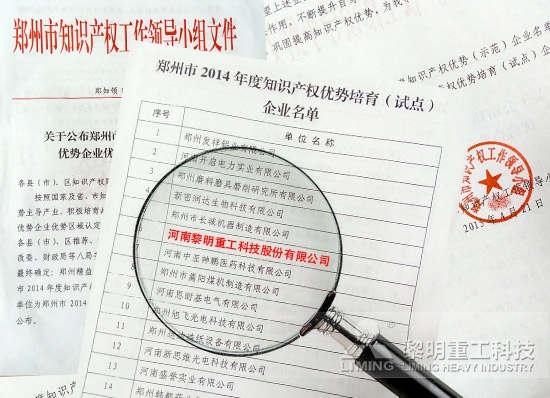 郑州市知识产权工作领导小组文件
郑知领
关于公布郑州市
优势企业优
各县（市）、区知识产权局
按照国家及省、市知
势主导产业，积极培育
优势企业优势区域认定
各县（市）区推荐、
改委、财政局等八局
最终确定：郑州精益
市2014年度知识产
单位为郑州市2014
公布。
郑州市2014年度知识产权优势培育（试点）
企业名单
序号 单位名称
1 郑州发祥铝业有限公司
2 河南开启电力实业有限公司
3 郑州磨料磨具磨削研究所有限公司
4 新密润达生物科技有限公司
5 郑州市长城机器制造有限公司
河南黎明重工科技股份有限公司
7 河南中亚神鹏医药科技有限公司
8 郑州市嵩阳煤机制造有限公司
9 河南思耐基电气有限公司
10 郑州旭飞光电科技有限公司
11 纸设备有限公司
12 河南新思维光电科技有限公司
13 河南盛誉实业有限公司
14
作用，不断提升自
巩固提高知识产权优势，为我
度知识产权优势（示范）企业名单
度知识产权优势培育（试点）企业
知识产权工作领导小组
权工作领导小
2015年4月21日
黎明重工科技
LIMING HEAVY INDUSTRY